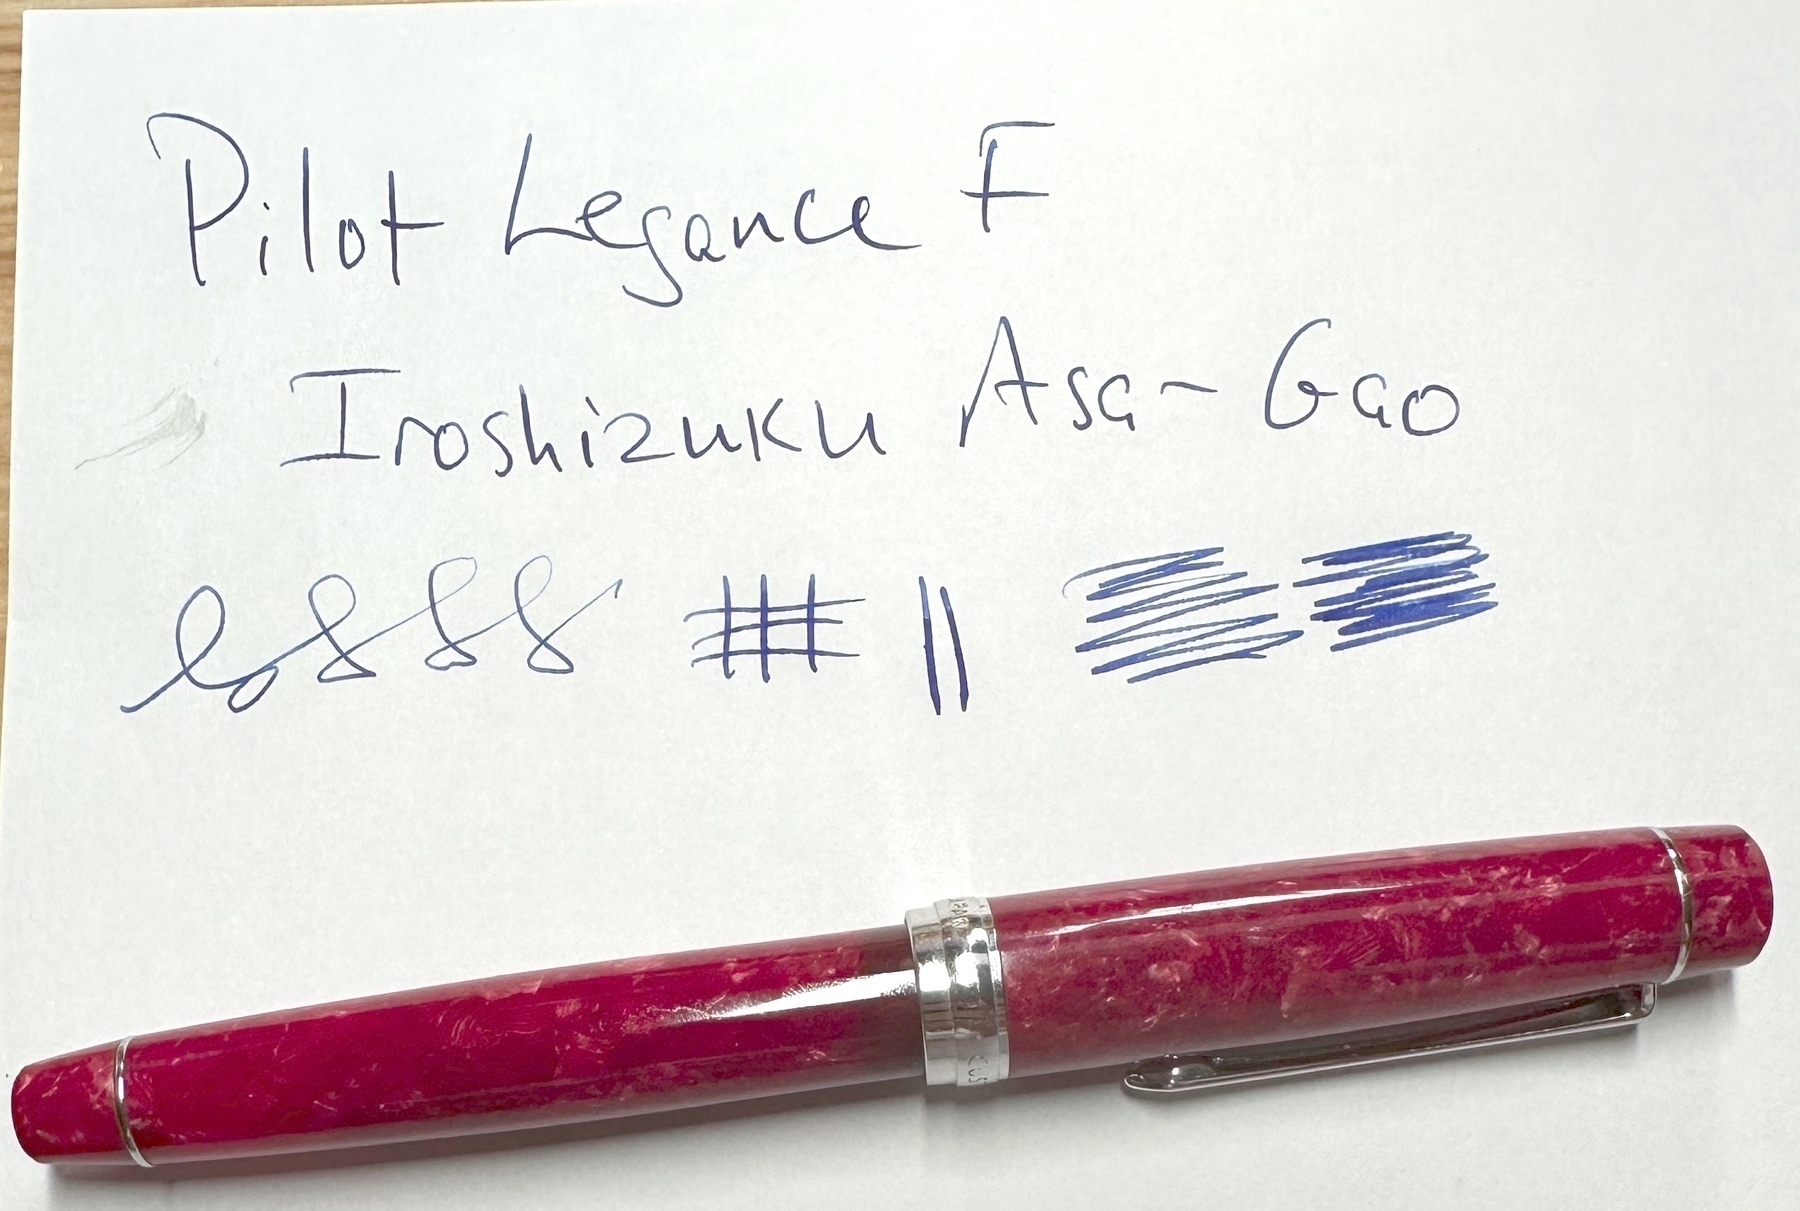 Pilot Legance F
Iroshizuku Asa-Gao